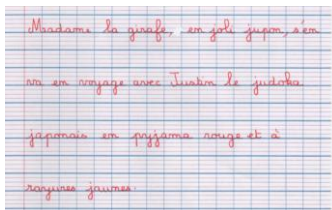 Madame la girafe, en joli jupon, s'en
va en voyage avec Justin le judoka
japonais en pyjama rouge et à
rayures jaunes.